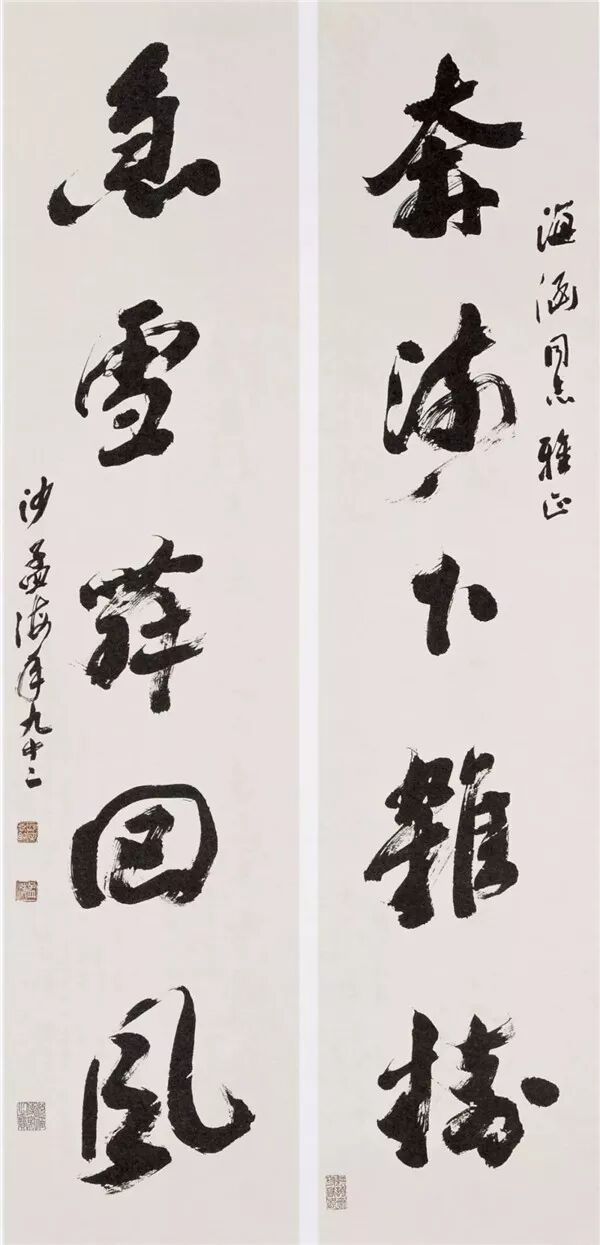 海涵同志雅正
奔下雜樹
急雪舞回風
沙孟海年九十二